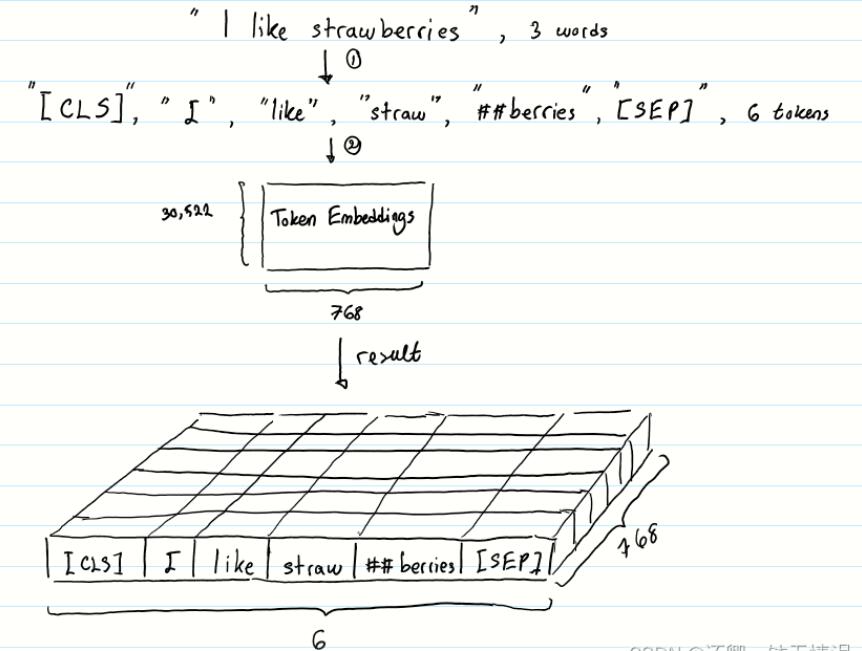 " I like strawberries ", 3 words
①
"[CLS]", "I", "like", "straw", "##berries", "[SEP]", 6 tokens
②
30,522
Token Embeddings
768
result
[CLS] I like straw ##berries [SEP]
768
6